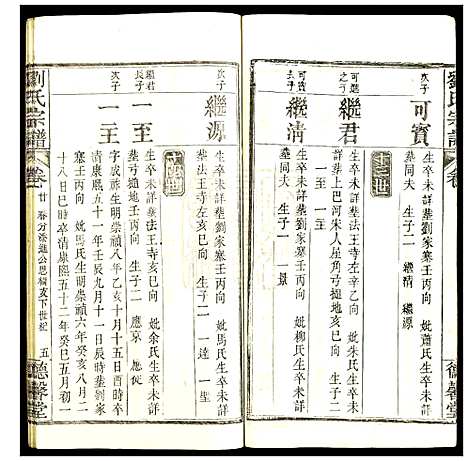 劉氏宗譜
卷
德馨堂
次子
可寶
生卒未詳葬劉家寨壬丙向 妣蕭氏生卒未詳
葬同夫 生子二 繼清 繼源
十三世
可選之子
繼君
生卒未詳葬法王寺左辛乙向 妣朱氏生卒未
詳葬上巴河宋人崖角弓撻地亥巳向 生子二
一至 一主
可寶長子
繼清
生卒未詳葬劉家寨壬丙向 妣柳氏生卒未詳
葬同夫 生子一 一景
次子
繼源
生卒未詳葬劉家寨壬丙向 妣馬氏生卒未詳
葬法王寺左亥巳向 生子二 一達 一聖
十四世
繼君長子
一至
生卒未詳葬法王寺亥巳向 妣余氏生卒未詳
生子二 應京 應從
次子
一主
字成德生明崇禎八年乙亥十月十五日亥時卒
清康熙五十一年壬辰九月十一日辰時葬劉家
寨壬丙向 妣馬氏生明崇禎六年癸亥八月二
十八日巳時卒清康熙五十二年癸巳五月初一
劉氏宗譜
卷廿
春分添進公思楫支下世紀
五
德馨堂